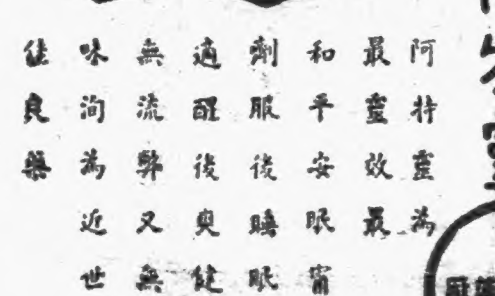 阿特靈為
最靈效最
和平安眠甯
劑服後睡眠
適醒後爽健
無流弊又無
味洵為近世
佳良藥